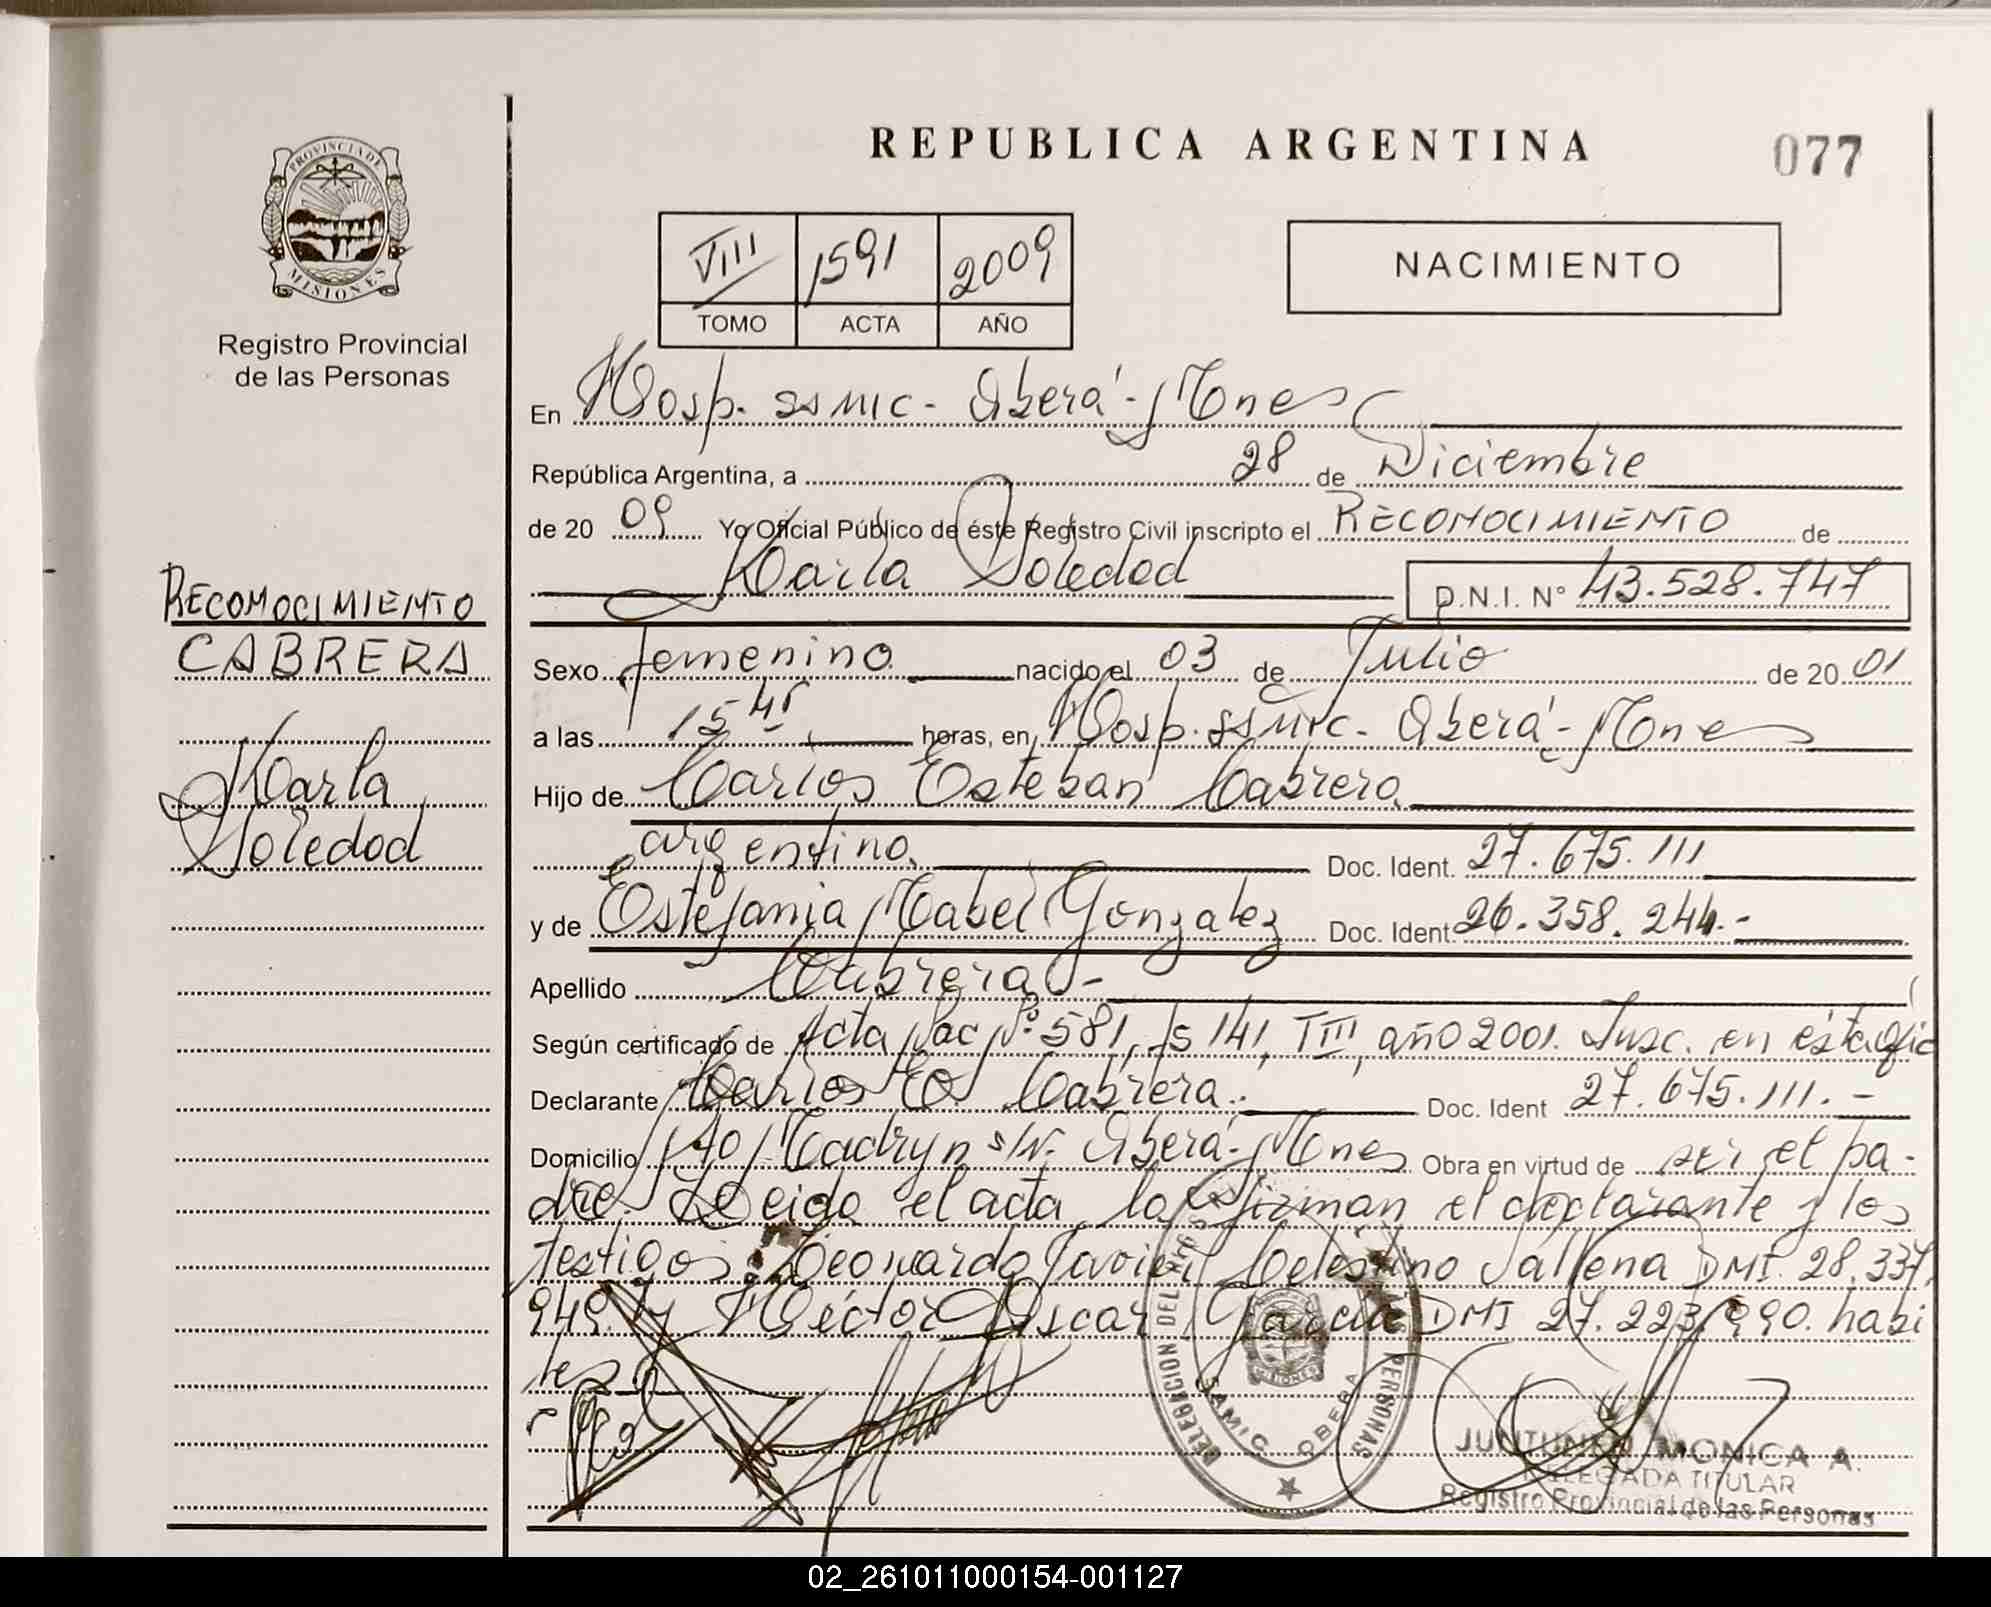 PROVINCIA DE
MISIONES
Registro Provincial
de las Personas
RECONOCIMIENTO
CABRERA
Karla
Soledad
REPUBLICA ARGENTINA
077
VIII 1591 2009
TOMO ACTA AÑO
NACIMIENTO
En Hosp. SSMIC - Oberá - Mnes
República Argentina, a 28 de Diciembre
de 20 09 Yo Oficial Público de éste Registro Civil inscripto el RECONOCIMIENTO de
Karla Soledad D.N.I. N° 43.528.747
Sexo femenino nacido el 03 de Julio de 20 01
a las 15 45 horas, en Hosp. SSMIC - Oberá - Mnes
Hijo de Carlos Esteban Cabrera
argentino Doc. Ident. 27.675.111
y de Estefania Mabel Gonzalez Doc. Ident. 26.358.244.-
Apellido Cabrera -
Según certificado de Acta Nac Nº 581, Fs 141, T III, año 2001. Insc. en ésta ofic
Declarante Carlos E. Cabrera.. Doc. Ident 27.675.111.-
Domicilio Pto Madryn s/N. Oberá - Mnes Obra en virtud de ser el pa-
dre. Leida el acta, la firman el declarante y los
testigos: Leonardo Javier Celestino DMI. 28.337.
949. y Héctor Oscar Garcia DMI 27.223.990. habi
les
DELEGACION DEL PERSONAS
SAMIC OBERA
JUNTUNEN MONICA A.
DELEGADA TITULAR
Registro Provincial de las Personas
02_261011000154-001127